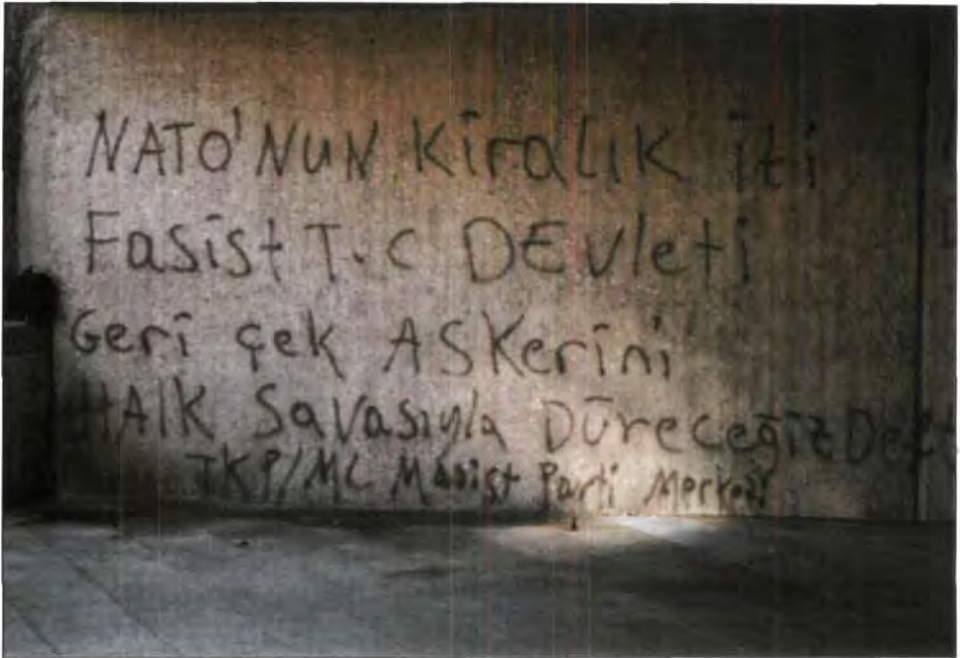 NATO'NUN KiralıK iti
Fasist T.C DEvleti
Geri çek ASKerini
HAlK Savasıyla Düreceğiz
TKP/ML Maoist Parti Merkezi